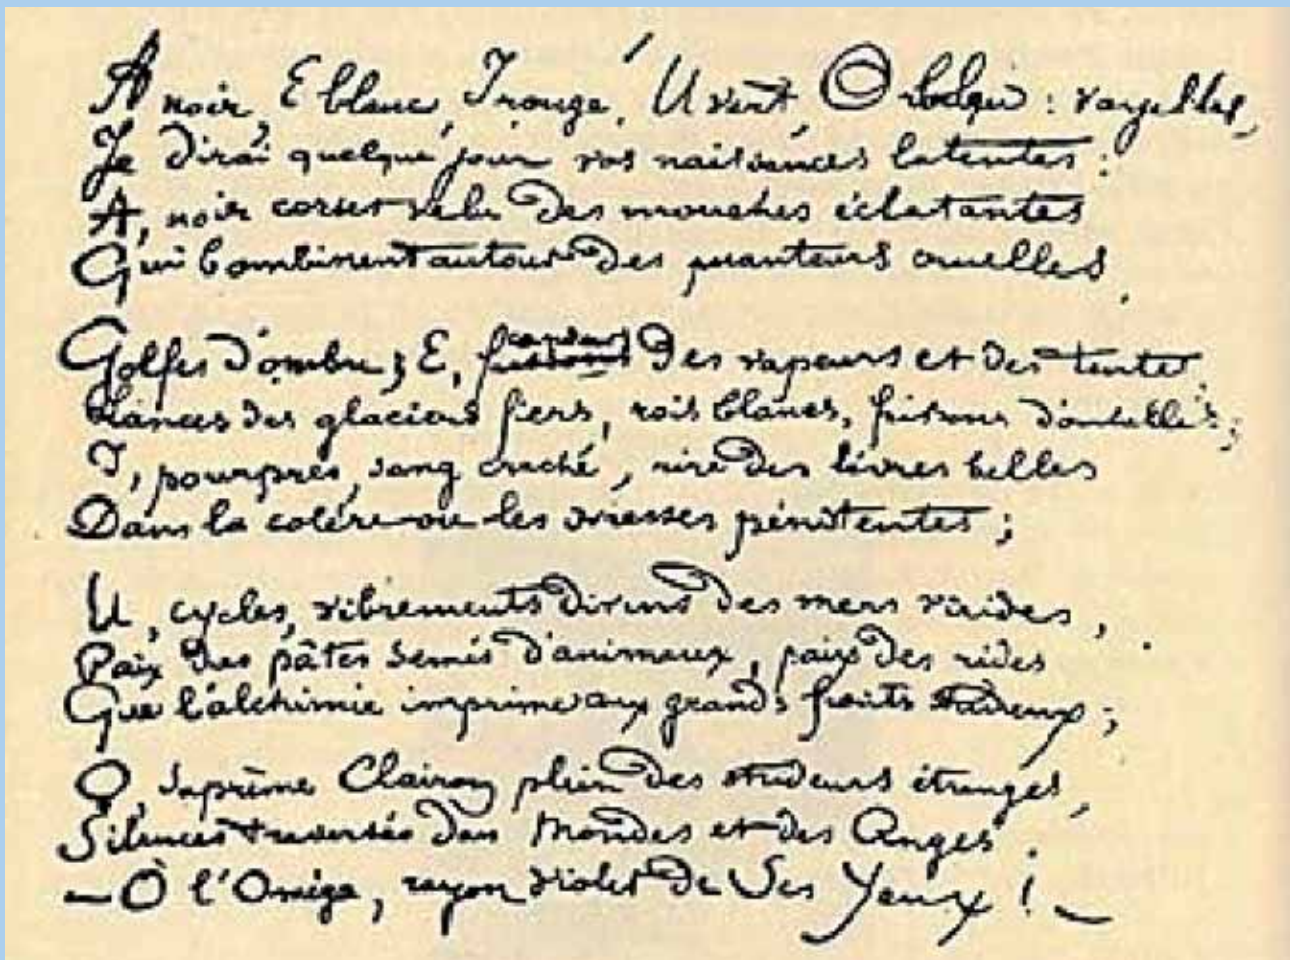 A noir, E blanc, I rouge, U vert, O bleu : voyelles,
Je dirai quelque jour vos naissances latentes :
A, noir corset velu des mouches éclatantes
Qui bombinent autour des puanteurs cruelles,
Golfes d'ombre ; E, candeurs des vapeurs et des tentes
Lances des glaciers fiers, rois blancs, frissons d'ombelles ;
I, pourpres, sang craché, rire des lèvres belles
Dans la colère ou les ivresses pénitentes ;
U, cycles, vibrements divins des mers virides,
Paix des pâtis semés d'animaux, paix des rides
Que l'alchimie imprime aux grands fronts studieux ;
O, suprême Clairon plein des strideurs étranges,
Silences traversés des Mondes et des Anges :
— O l'Oméga, rayon violet de Ses Yeux ! —